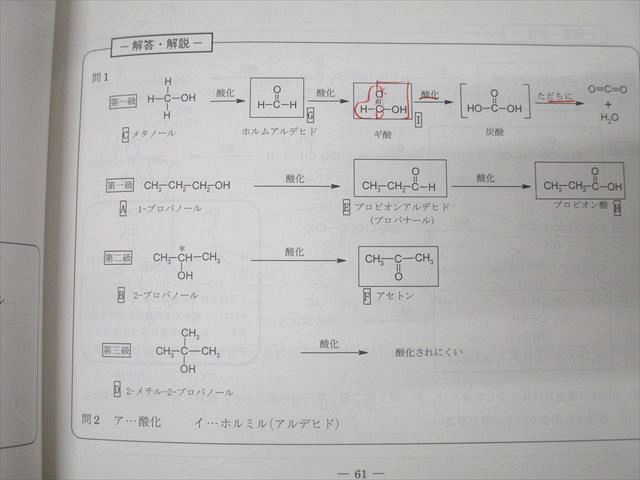 ― 解答・解説 ―
問1
第一級
H
H-C-OH
H
酸化
O
H-C-H
酸化
O
H-C-OH
酸化
O
HO-C-OH
ただちに
O=C=O
+
H₂O
C メタノール
ホルムアルデヒド
G
ギ酸
I
炭酸
第一級
CH₃-CH₂-CH₂-OH
酸化
O
CH₃-CH₂-C-H
酸化
O
CH₃-CH₂-C-OH
A 1-プロパノール
E プロピオンアルデヒド
(プロパナール)
プロピオン酸
H
第二級
*
CH₃-CH-CH₃
OH
酸化
CH₃-C-CH₃
O
B 2-プロパノール
F アセトン
第三級
CH₃
CH₃-C-CH₃
OH
酸化
酸化されにくい
D 2-メチル-2-プロパノール
問2 ア…酸化 イ…ホルミル(アルデヒド)
― 61 ―